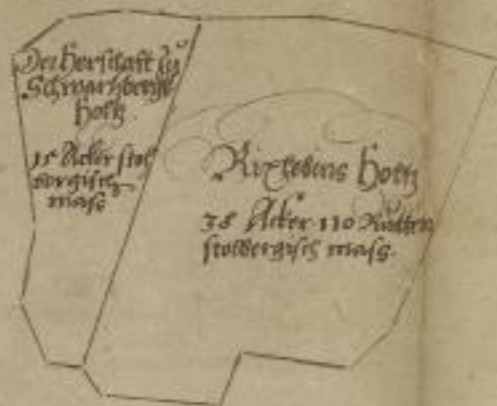 Der Herschaft zu
Schwartzbergk
Holtz.
15 Acker stol
bergisch
mass
Rixlebens Holtz
38 Acker 110 Rutten
stolbergisch mass.